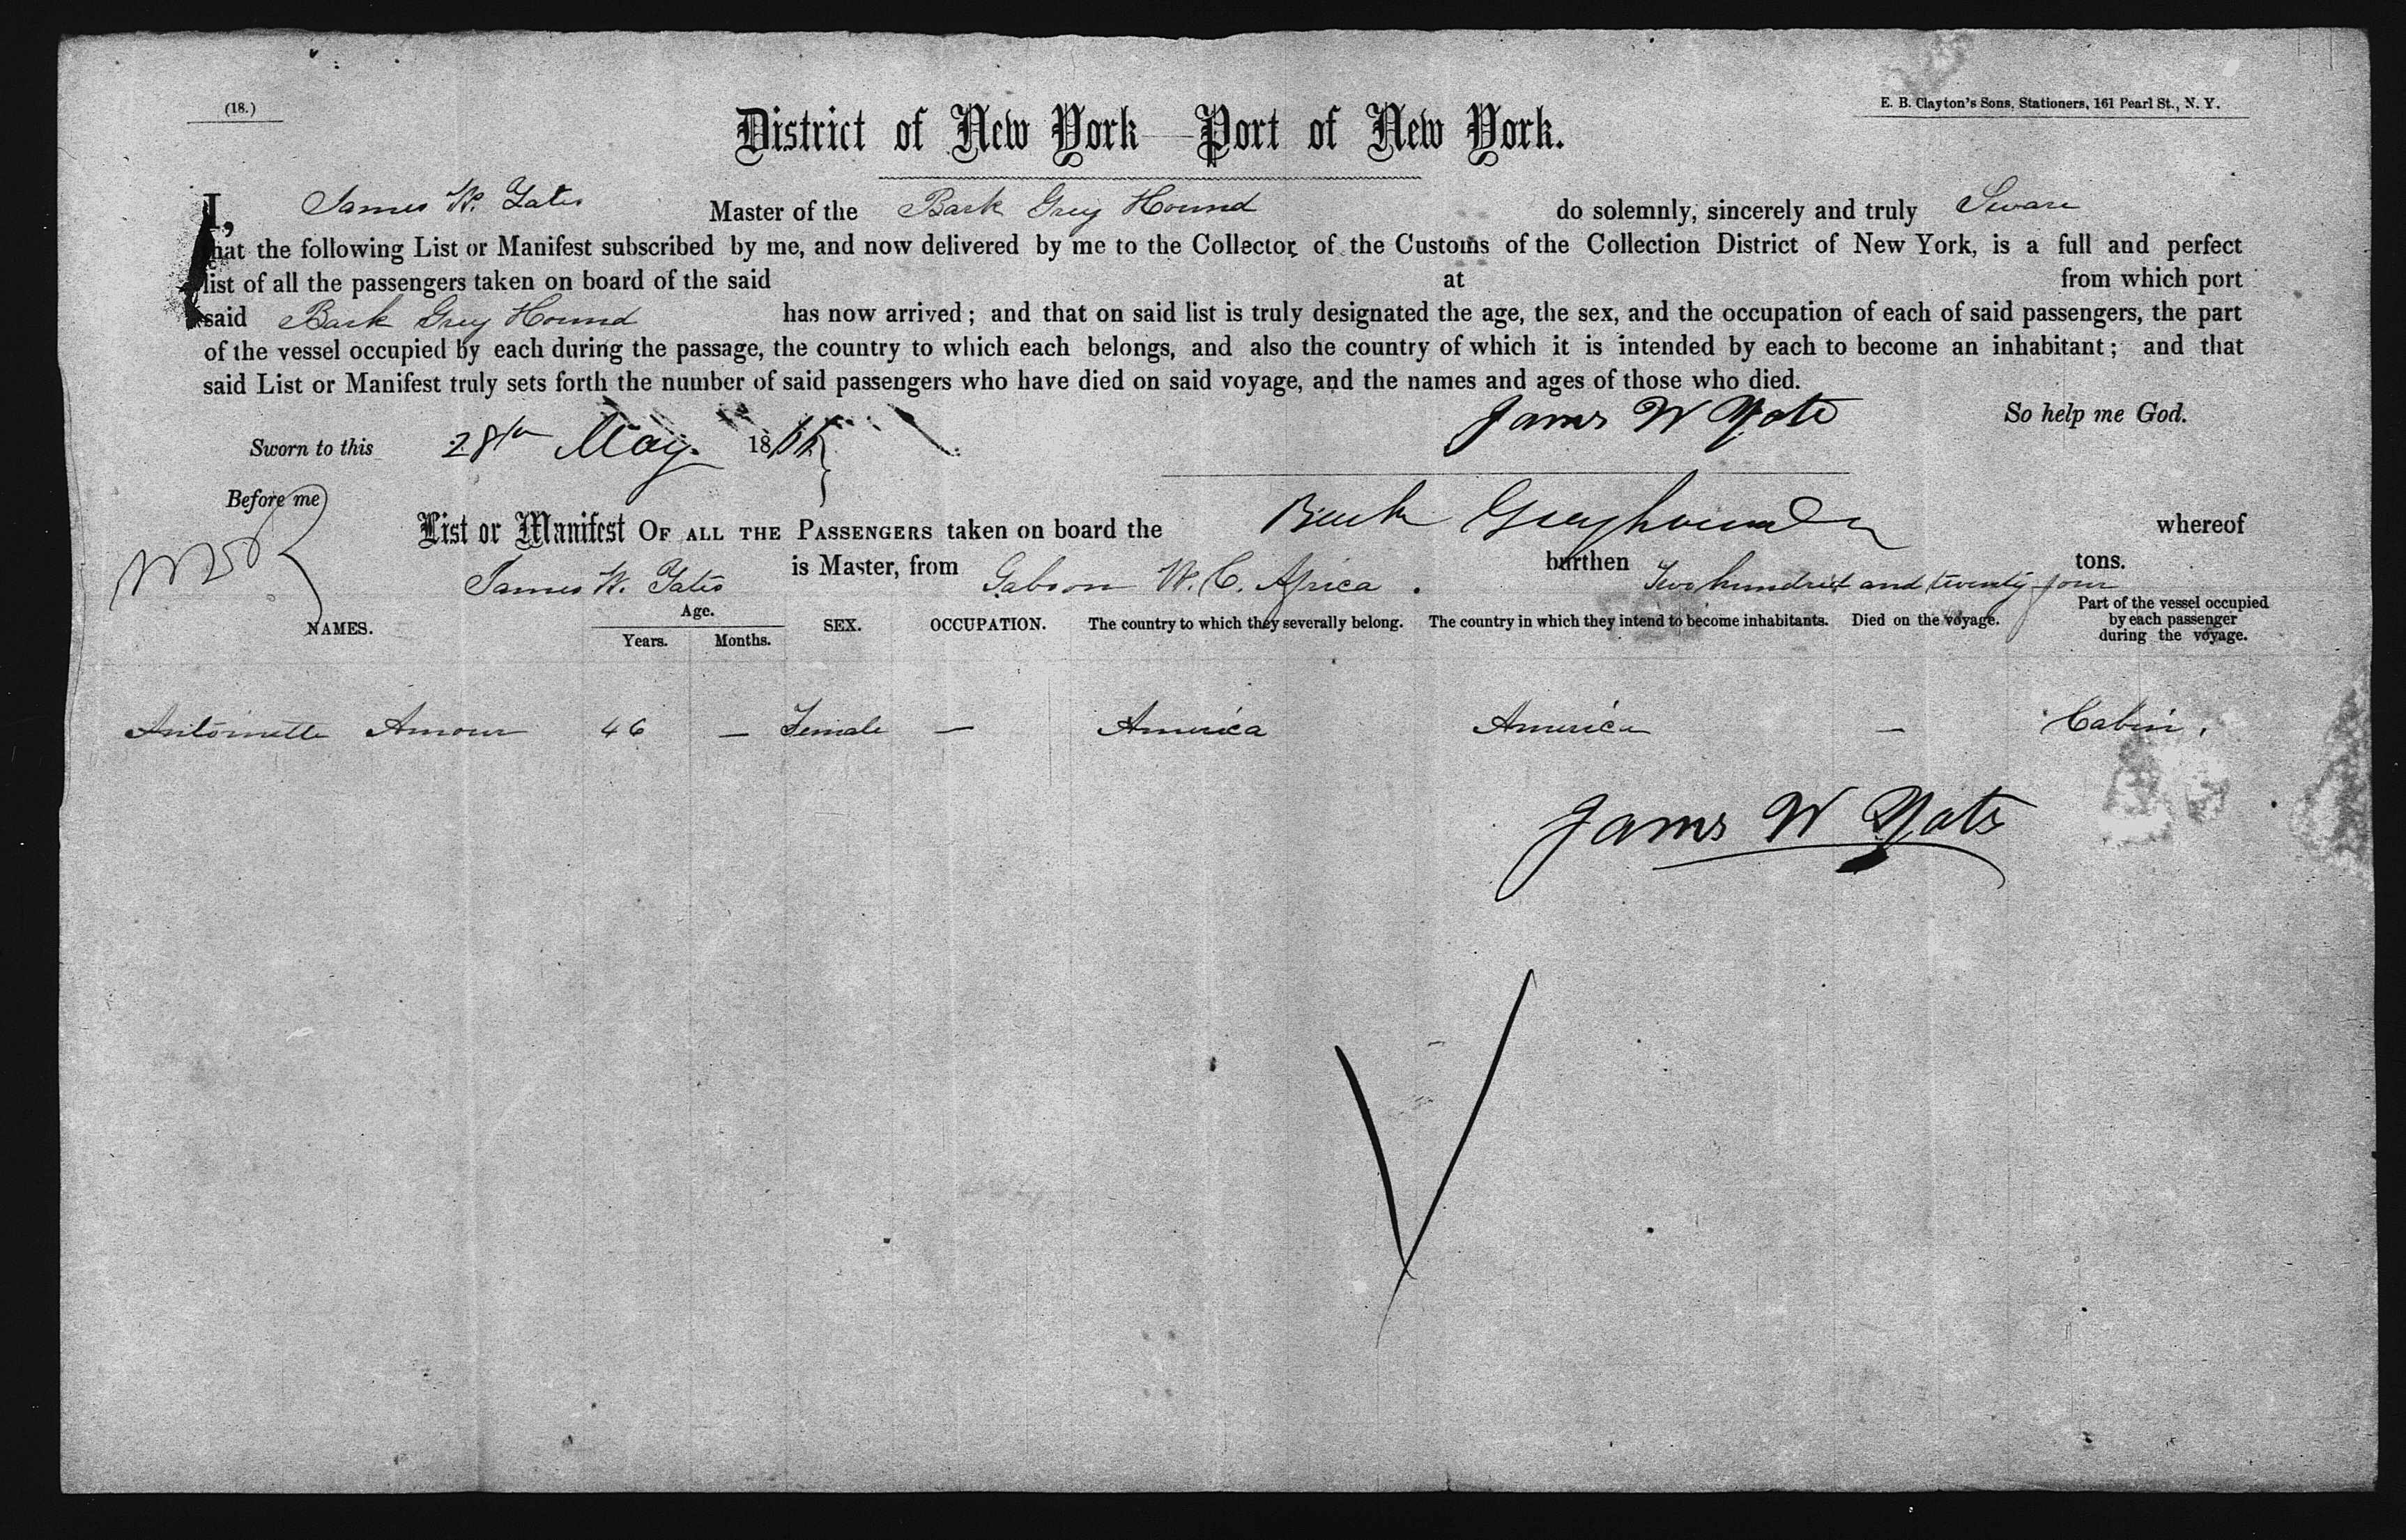 (18.)
E. B. Clayton's Sons, Stationers, 161 Pearl St., N. Y.
District of New York—Port of New York.
I, James W. Yates Master of the Bark Grey Hound do solemnly, sincerely and truly Sware
that the following List or Manifest subscribed by me, and now delivered by me to the Collector of the Customs of the Collection District of New York, is a full and perfect
list of all the passengers taken on board of the said at from which port
said Bark Grey Hound has now arrived; and that on said list is truly designated the age, the sex, and the occupation of each of said passengers, the part
of the vessel occupied by each during the passage, the country to which each belongs, and also the country of which it is intended by each to become an inhabitant; and that
said List or Manifest truly sets forth the number of said passengers who have died on said voyage, and the names and ages of those who died.
James W Yates So help me God.
Sworn to this 28th May. 18
Before me
List or Manifest OF ALL THE PASSENGERS taken on board the Bark Greyhound whereof
James W. Yates is Master, from Gaboon W. C. Africa. burthen Two hundred and twenty four tons.
NAMES. Age. Years. Months. SEX. OCCUPATION. The country to which they severally belong. The country in which they intend to become inhabitants. Died on the voyage. Part of the vessel occupied by each passenger during the voyage.
Antoinette Amour 46 — Female — America America — Cabin.
James W Yates